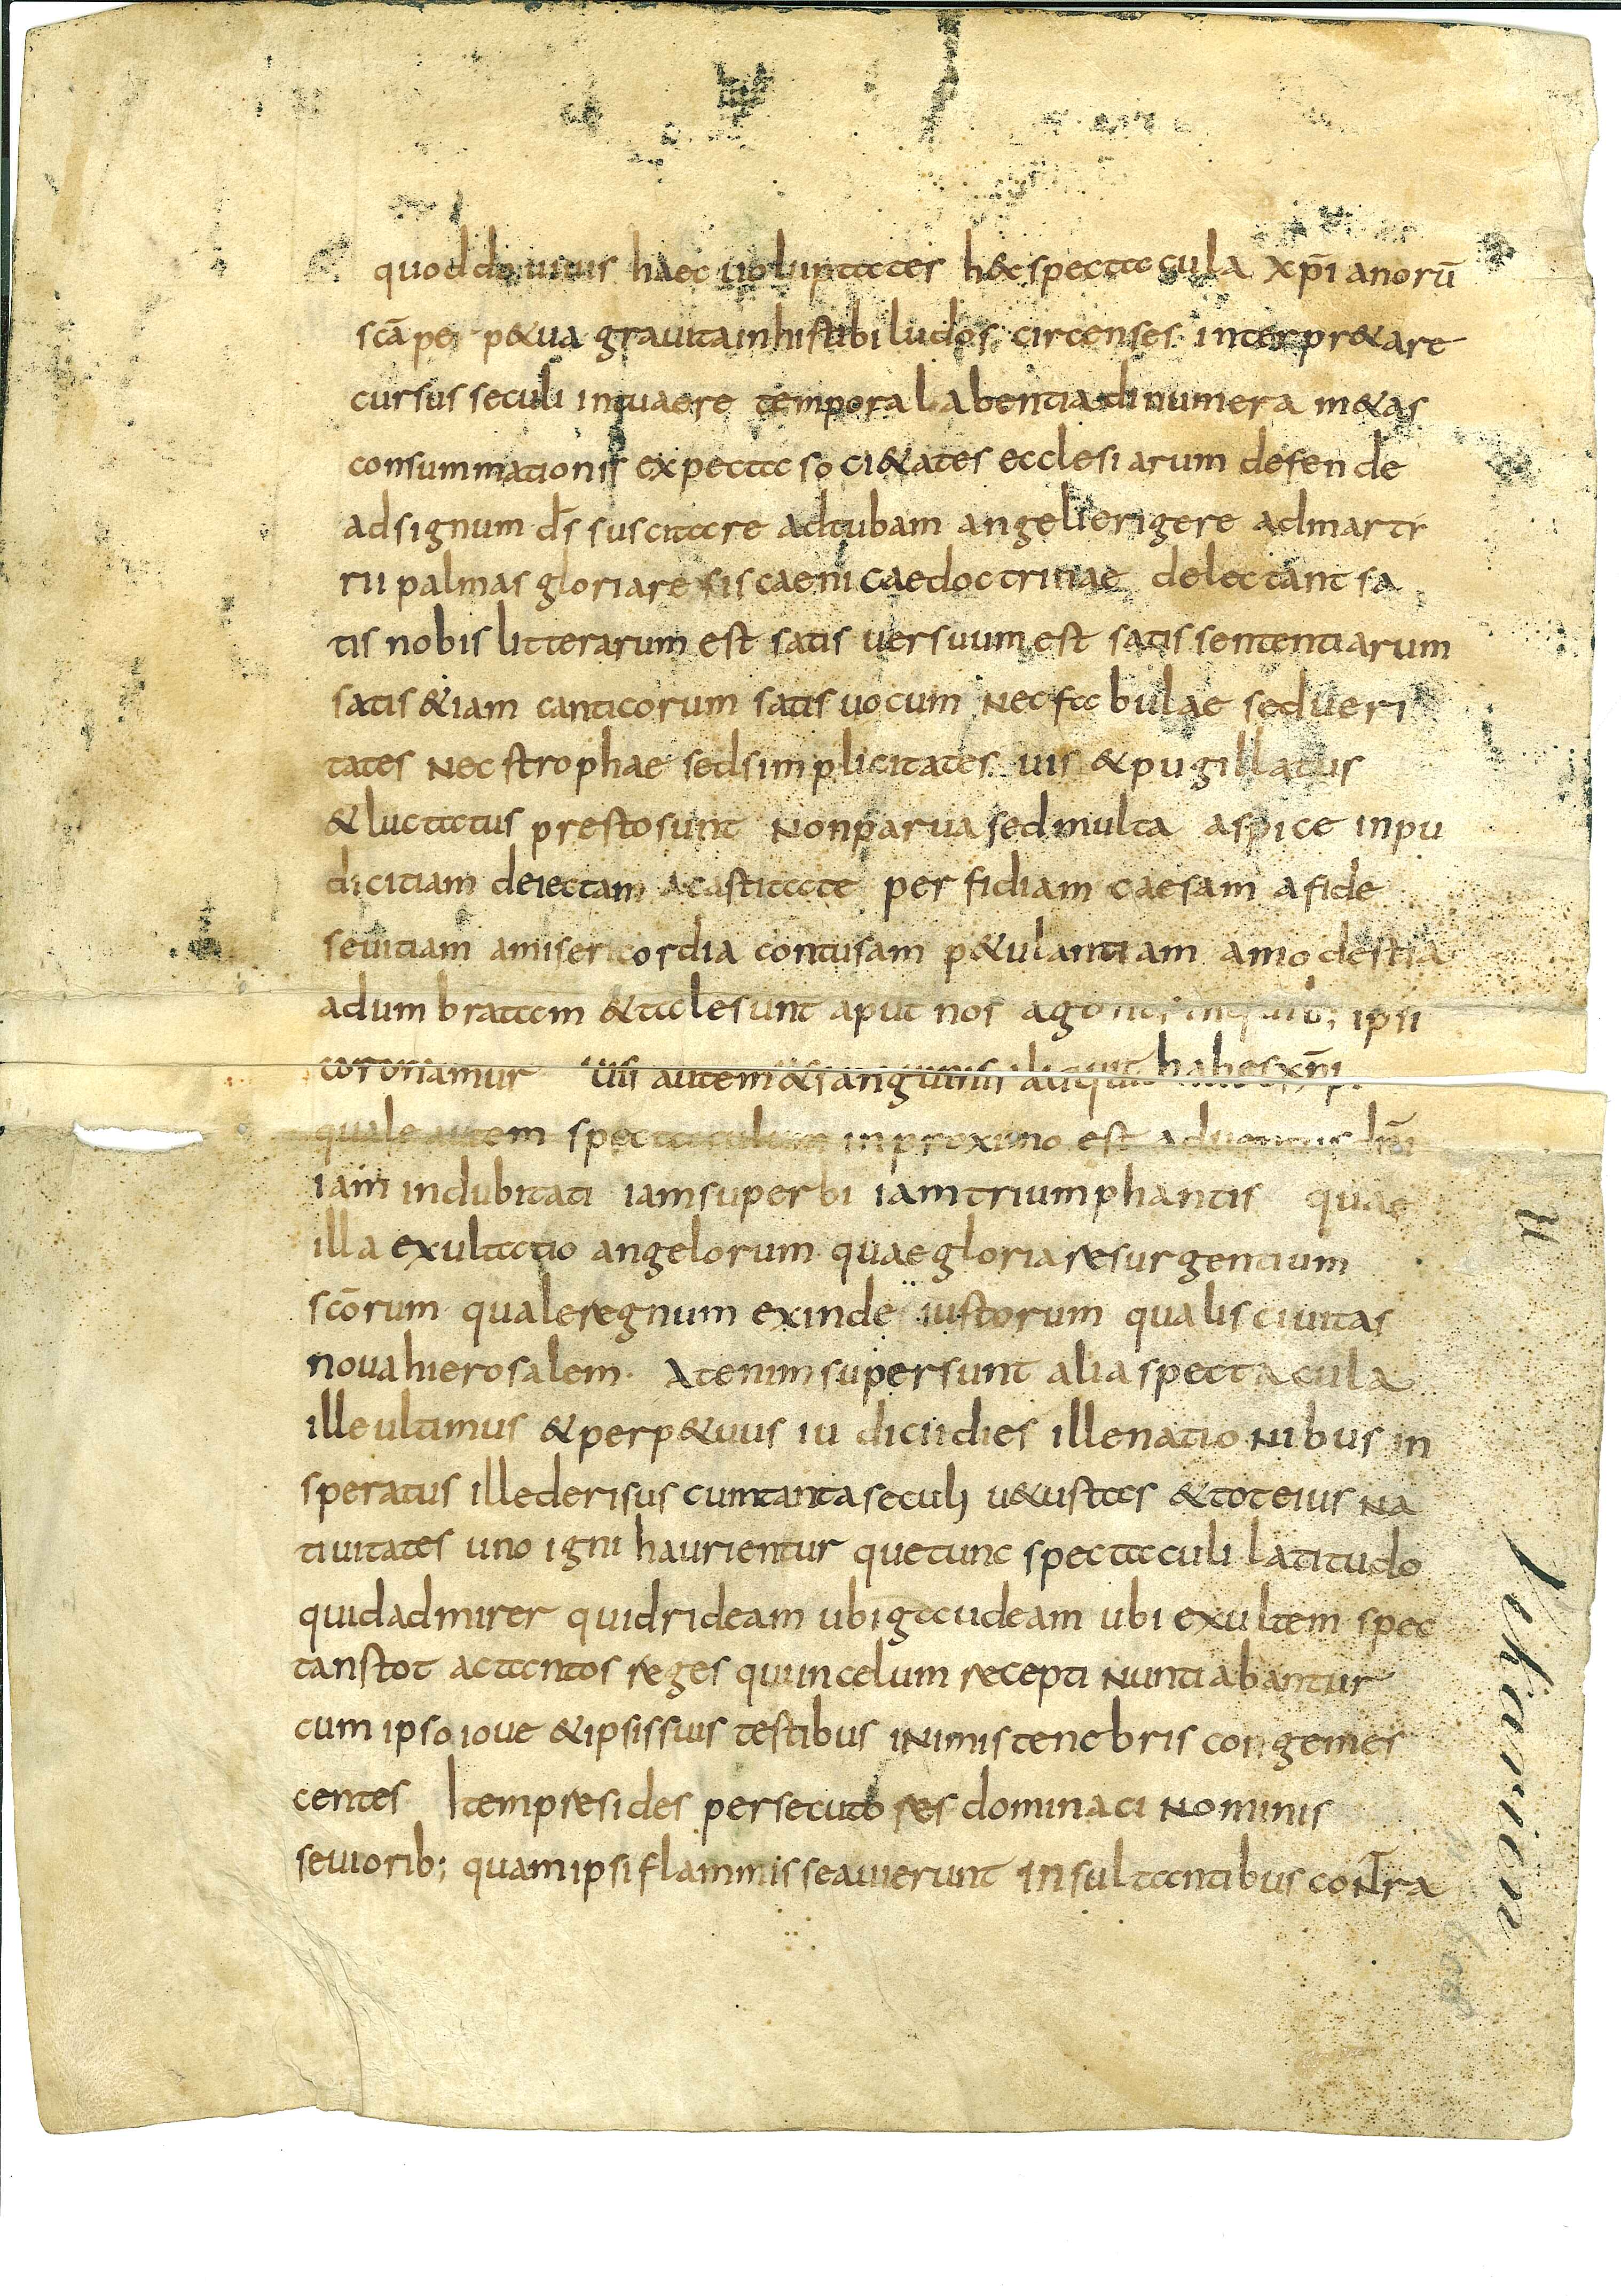 quod do uiuis haec uoluptates h&c spectacula xp̄ianorū
scā per p&ua grauita inhis tibi ludos circenses interpr&are
cursus seculi intuaere tempora labentia dinumera m&as
consummationis expecta soci&ates ecclesiarum defende
ad signum dī suscitare adtubam angeli erigere admartr
rū palmas gloriare si scaenicae doctrinae delectant sa
tis nobis litterarum est satis uersuum est satis sententiarum
satis &iam canticorum satis uocum nec fabulae sed ueri
tates nec strophae sed simplicitates uis & pugillatus
& luctatus presto sunt non parua sed multa aspice inpu
dicitiam deiectam a castitate perfidiam caesam a fide
seuitiam amisericordia contusam p&ulantiam amodestia
adumbratam & tales unt aput nos agones ipsi
coronamur uis autem & sanguinis aliquit habes xp̄i
quale autem spectaculum in proximo est aduentus dn̄i
iam indubitati iam superbi iam triumphantis quae
illa exultatio angelorum quae gloria resurgentium
scōrum quale regnum exinde iustorum qualis ciuitas
noua hierosalem. At enim supersunt alia spectacula
ille ultimus & perp&uus iudicii dies ille nationibus in
speratus ille derisus cum tanta seculi u&ustas & tot eius na
tiuitates uno igni haurientur que tunc spectaculi latitudo
quid admirer quid rideam ubi gaudeam ubi exultem spec
tans tot ac tantos reges qui in celum recepti nuntiabantur
cum ipso ioue & ipsis suis testibus in imis tenebris congemes
centes Item presides persecutores dominaci nominis
seuiorib; quam ipsi flammis seauierunt insultantibus contra